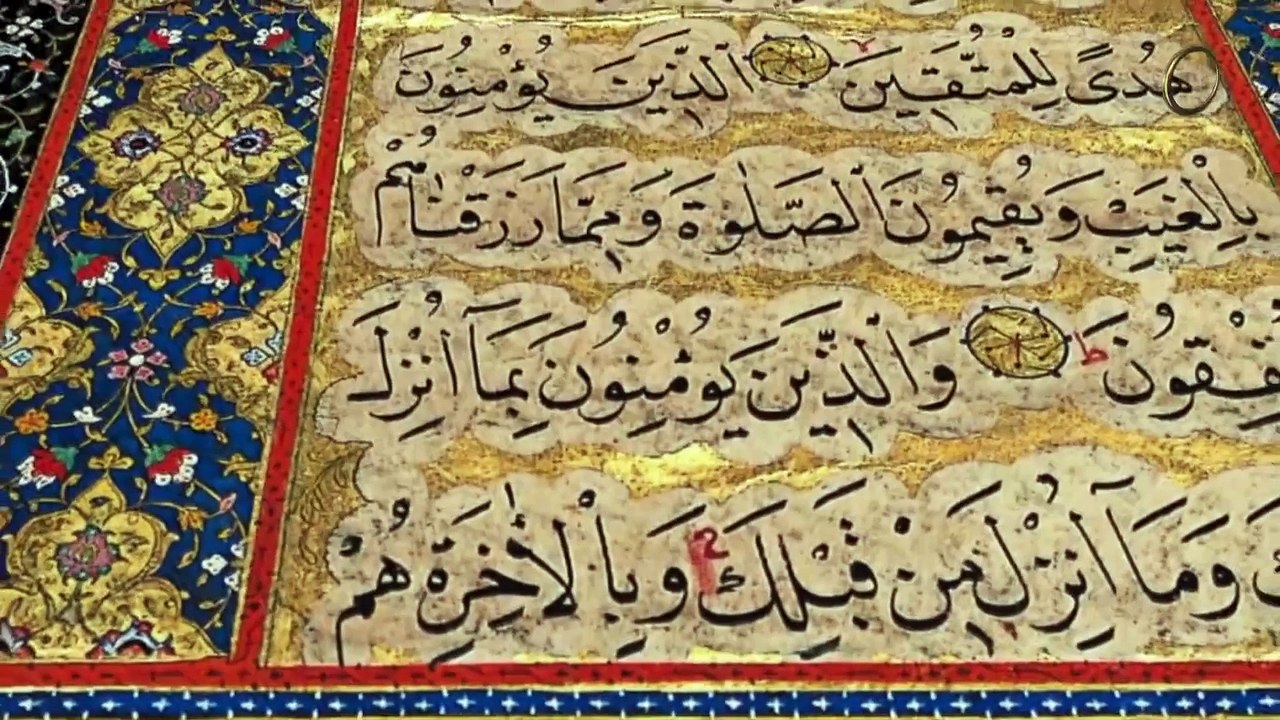 هُدًى لِلْمُتَّقِينَ ۙ ٱلَّذِينَ يُؤْمِنُونَ
بِالْغَيْبِ وَيُقِيمُونَ ٱلصَّلٰوةَ وَمِمَّا رَزَقْنَاهُمْ
يُنْفِقُونَ ط وَٱلَّذِينَ يُؤْمِنُونَ بِمَآ اُنْزِلَ
وَمَآ اُنْزِلَ مِنْ قَبْلِكَ وَبِالْاٰخِرَةِ هُمْ